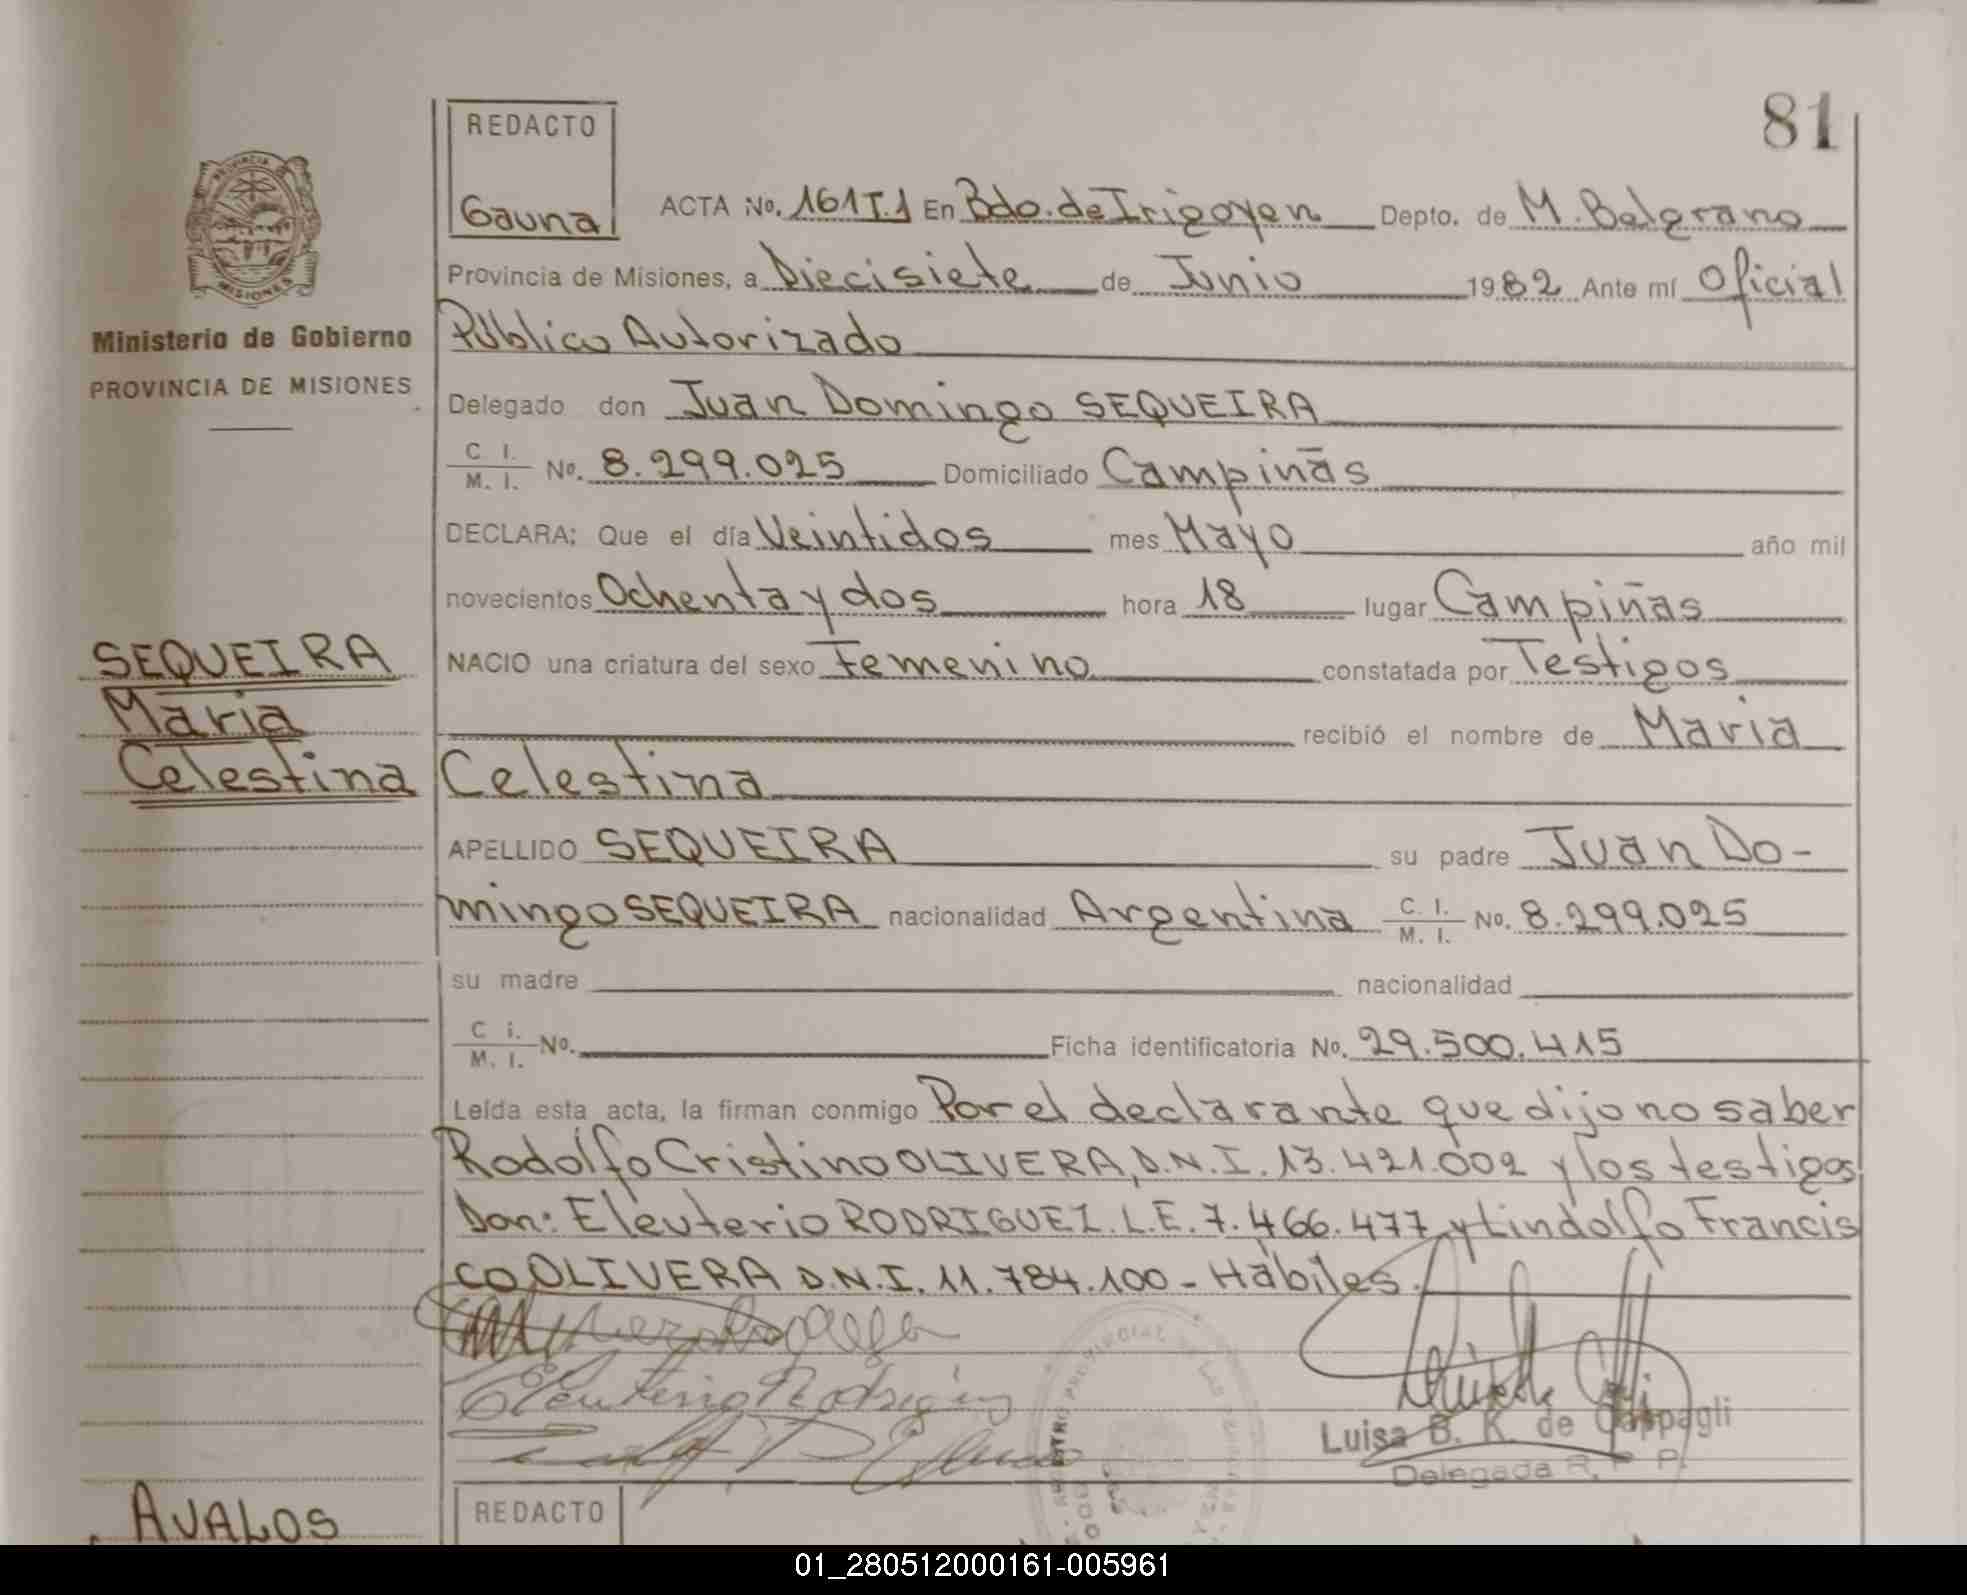 81
REDACTO
Gauna
ACTA No. 161T.1 En Bdo. de Irigoyen Depto. de M. Belgrano
PROVINCIA
MISIONES
Provincia de Misiones, a Diecisiete de Junio 1982 Ante mí Oficial
Ministerio de Gobierno
Público Autorizado
PROVINCIA DE MISIONES
Delegado don Juan Domingo SEQUEIRA
C. I.
M. I. No. 8.299.025 Domiciliado Campiñas
DECLARA: Que el día Veintidos mes Mayo año mil
novecientos Ochenta y dos hora 18 lugar Campiñas
SEQUEIRA
Maria
Celestina
NACIO una criatura del sexo Femenino constatada por Testigos
recibió el nombre de Maria
Celestina
APELLIDO SEQUEIRA su padre Juan Do-
mingo SEQUEIRA nacionalidad Argentina C. I. M. I. No. 8.299.025
su madre nacionalidad
C i.
M. I. No. Ficha identificatoria No. 29.500.415
Leída esta acta, la firman conmigo Por el declarante que dijo no saber
Rodolfo Cristino OLIVERA, D.N.I. 13.421.002 y los testigos
Don: Eleuterio RODRIGUEZ. L.E. 7.466.477 y Lindolfo Francis
co OLIVERA D.N.I. 11.784.100 - Hábiles.
Eleuterio Rodriguez
Luisa B. K. de Gappagli
Delegada R. P. P.
AVALOS
REDACTO
01_280512000161-005961